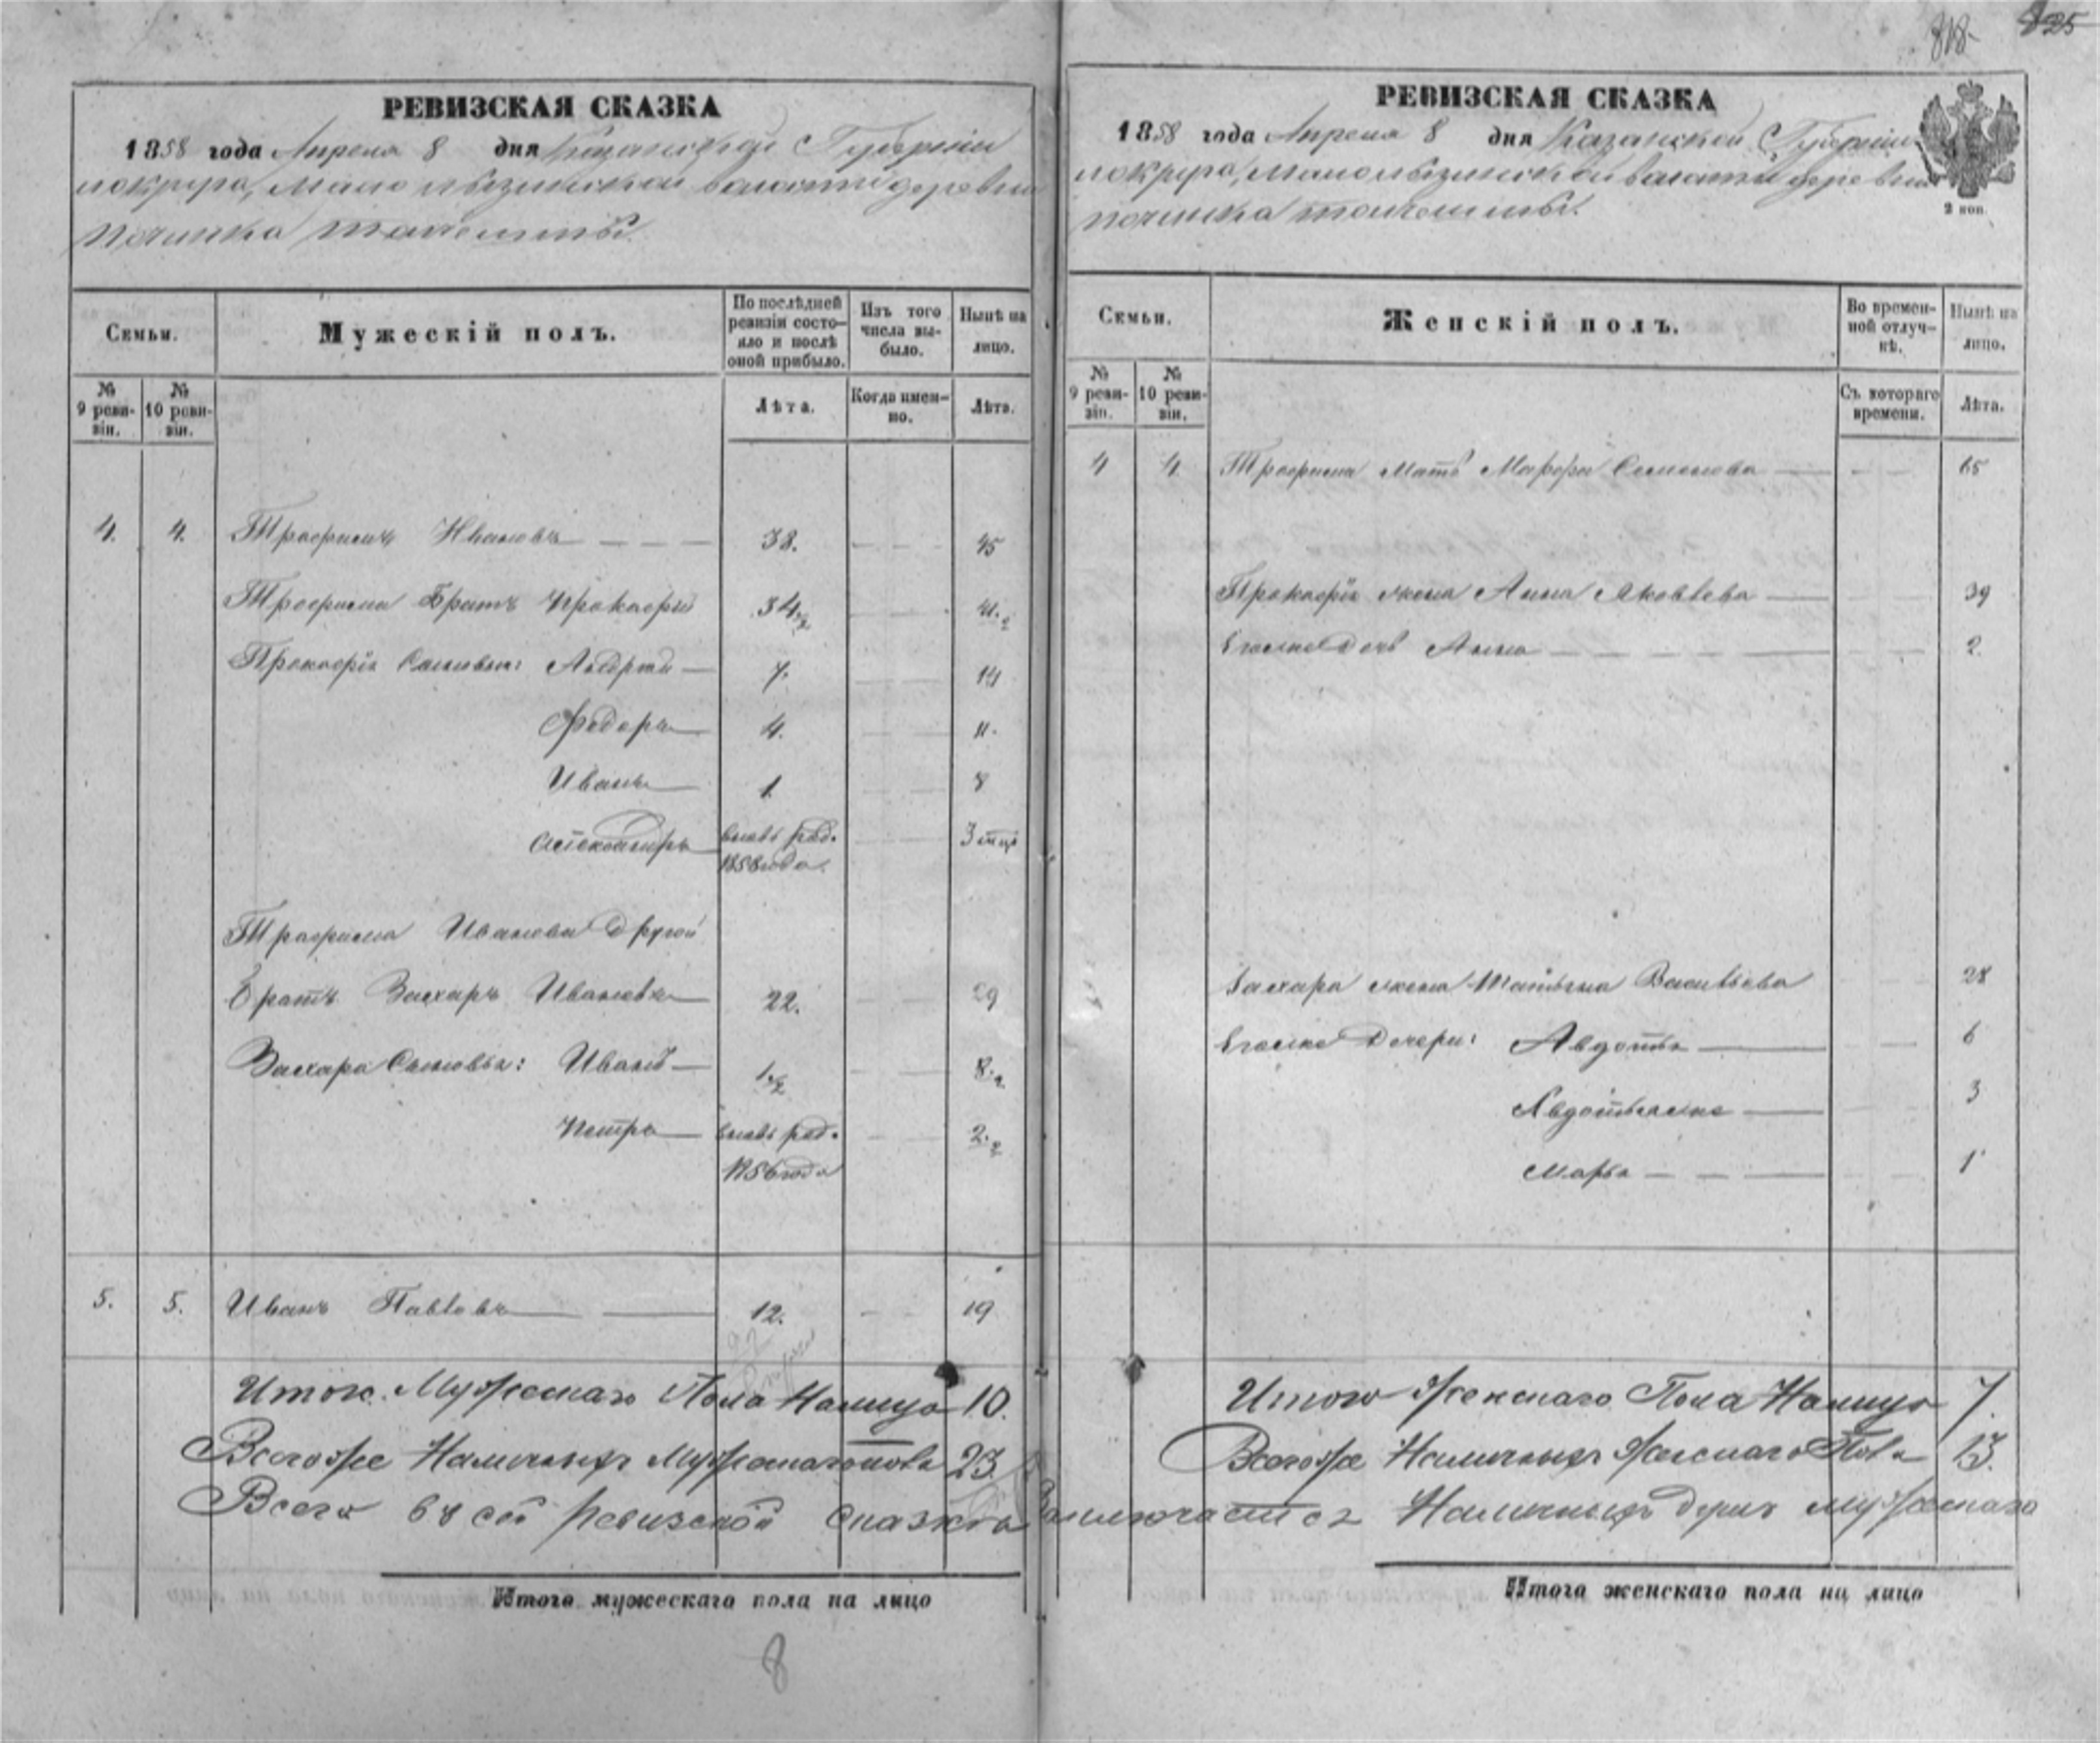 818
825
РЕВИЗСКАЯ СКАЗКА
1858 года Апреля 8 дня Казанской Губернiи
волости деревни
починка
Семьи.
Мужескiй полъ.
По послѣдней ревизiи состояло и послѣ оной прибыло.
Изъ того числа выбыло.
Нынѣ на лицо.
№ 9 ревизiи.
№ 10 ревизiи.
Лѣта.
Когда именно.
Лѣта.
4. 4. Трофимъ Ивановъ 38. 45
Трофима Братъ Прокофiй 34 1/2 41. 1/2
Прокофiя Сыновья: 7. 14
Федоръ 4. 11.
Иванъ 1 8
Александръ вновь рад. 3 мцъ
1858 года
Трофима Иванова другой
Братъ Захаръ Ивановъ 22. 29
Захара Сыновья: Иванъ 1. 1/2 8. 1/2
Петръ вновь рад. 2. 1/2
1856 года
5. 5. Иванъ Павловъ 12. 19
Итого Мужескаго Пола Налицо 10.
Всего же Наличныхъ Мужескаго пола 23.
Всего въ сей ревизской сказкѣ
Итого мужескаго пола на лицо
8
РЕВИЗСКАЯ СКАЗКА
1858 года Апреля 8 дня Казанской Губернiи
волости деревни
починка
2 коп.
Семьи.
Женскiй полъ.
Во временной отлучкѣ.
Нынѣ на лицо.
№ 9 ревизiи.
№ 10 ревизiи.
Съ котораго времени.
Лѣта.
4 4 Трофима Мать Марфа Семенова 65
Прокофiя жена Анна Яковлева 39
Егоже Дочь Анна 2.
Захара жена Татьяна Васильева 28
Егоже Дочери: Авдотья 6
Авдотьяже 3
Марья 1
Итого Женскаго Пола Налицо 7.
Всего же Наличныхъ Женскаго Пола 13.
Заключается Наличныхъ душъ мужескаго
Итого женскаго пола на лицо